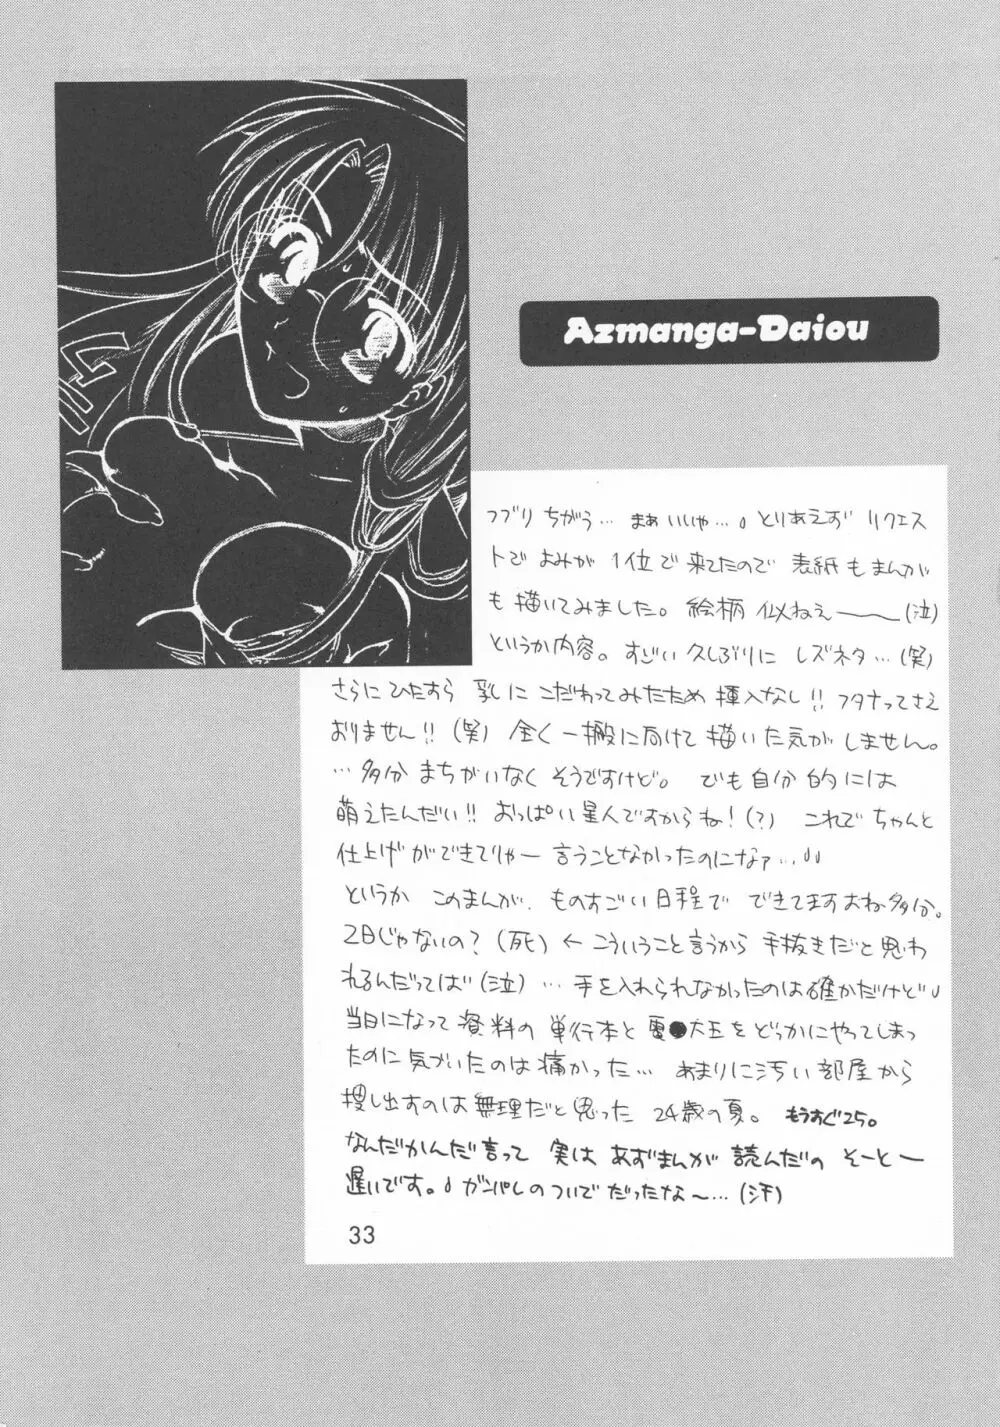 Azmanga-Daiou
フブリ ちがう… まぁいいや…。とりあえず リクエス
トで よみが 1位で 来てたので 表紙もまんが
も 描いてみました。絵柄 似ねえ――(泣)
というか内容。すごい久しぶりに レズネタ…(笑)
さらにひたすら 乳に こだわってみたため 挿入なし!! フタナってさえ
おりません!! (笑) 全く一般に向けて 描いた気が しません。
…多分 まちがいなく そうですけど。 でも自分的には
萌えたんだい!! おっぱい星人ですからね!(?) これで ちゃんと
仕上げができてりゃー 言うことなかったのになァ…
というか このまんが、ものすごい日程で できてますよね多分。
2日じゃないの?(死) ← こういうこと言うから 手抜きだと思わ
れるんだってば(泣)… 手を入れられなかったのは確かだけど
当日になって 資料の 単行本と 電●大王を どっかにやってしまっ
たのに気づいたのは痛かった… あまりに汚い部屋から
捜し出すのは無理だと思った 24歳の夏。 もうすぐ25。
なんだかんだ言って 実は あずまんが 読んだの そーとー
遅いです。ガンパレのついでだったな〜…(汗)
33